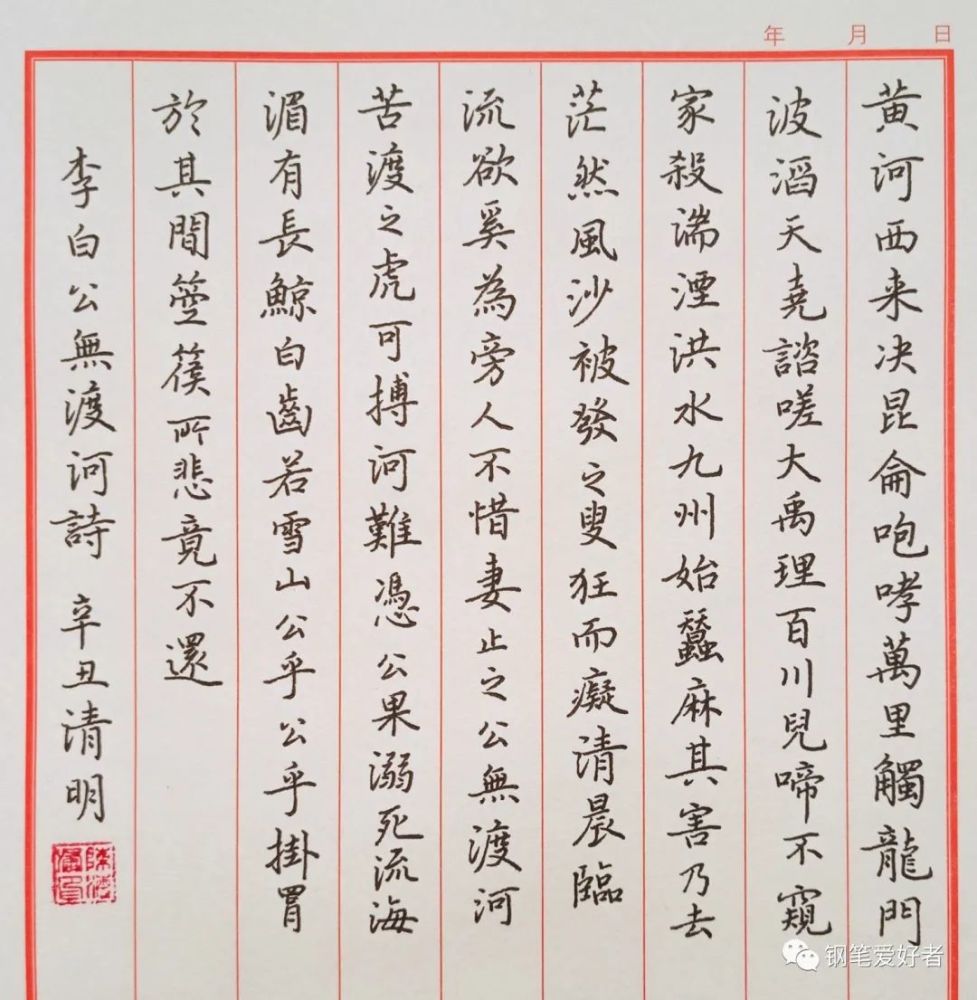 年 月 日
黄河西来决昆侖咆哮萬里觸龍門
波滔天堯諮嗟大禹理百川兒啼不窺
家殺湍湮洪水九州始蠶麻其害乃去
茫然風沙被發之叟狂而癡清晨臨
流欲奚為旁人不惜妻止之公無渡河
苦渡之虎可搏河難憑公果溺死流海
湄有長鯨白齒若雪山公乎公乎掛罥
於其間箜篌所悲竟不還
李白公無渡河詩 辛丑清明
钢笔爱好者